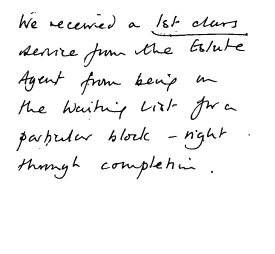 We received a 1st class
service from the Estate
Agent from being on
the Waiting List for a
particular block – right
through completion.